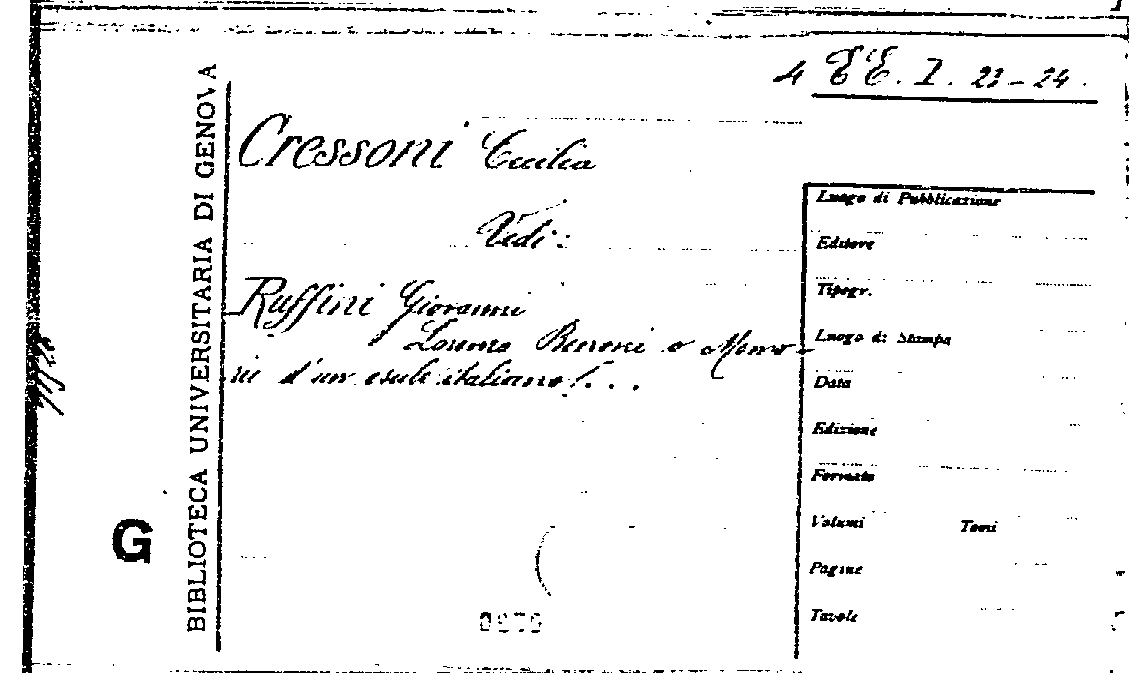 4 EE. I. 23-24.
BIBLIOTECA UNIVERSITARIA DI GENOVA
Cressoni Cecilia
Vedi:
Ruffini Giovanni
Lorenzo Benoni o Memo-
rie d'un esule italiano!...
Luogo di Pubblicazione
Editore
Tipogr.
Luogo di Stampa
Data
Edizione
Formato
Volumi Tomi
Pagine
Tavole
G